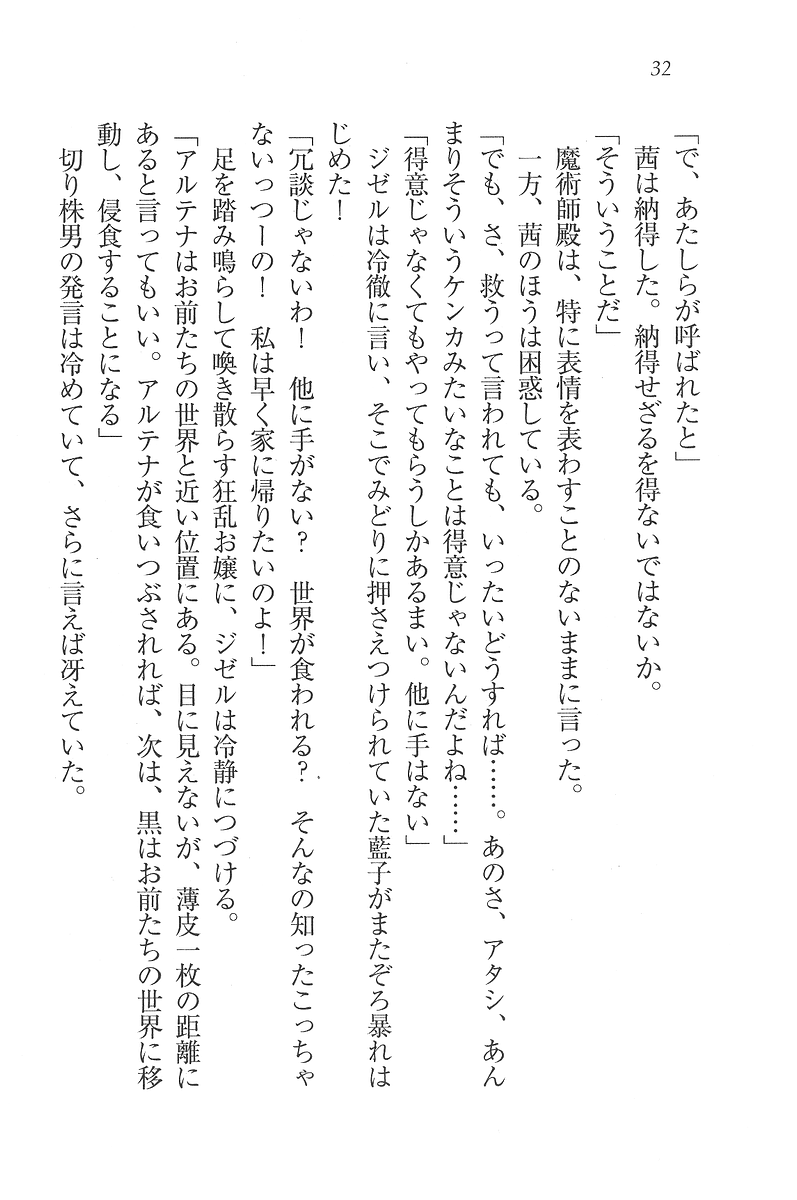 32
「で、あたしらが呼ばれたと」
　茜は納得した。納得せざるを得ないではないか。
「そういうことだ」
　魔術師殿は、特に表情を表わすことのないままに言った。
　一方、茜のほうは困惑している。
「でも、さ、救うって言われても、いったいどうすれば……。あのさ、アタシ、あん
まりそういうケンカみたいなことは得意じゃないんだよね……」
「得意じゃなくてもやってもらうしかあるまい。他に手はない」
　ジゼルは冷徹に言い、そこでみどりに押さえつけられていた藍子がまたぞろ暴れは
じめた！
「冗談じゃないわ！　他に手がない？　世界が食われる？　そんなの知ったこっちゃ
ないっつーの！　私は早く家に帰りたいのよ！」
　足を踏み鳴らして喚き散らす狂乱お嬢に、ジゼルは冷静につづける。
「アルテナはお前たちの世界と近い位置にある。目に見えないが、薄皮一枚の距離に
あると言ってもいい。アルテナが食いつぶされれば、次は、黒はお前たちの世界に移
動し、侵食することになる」
　切り株男の発言は冷めていて、さらに言えば冴えていた。